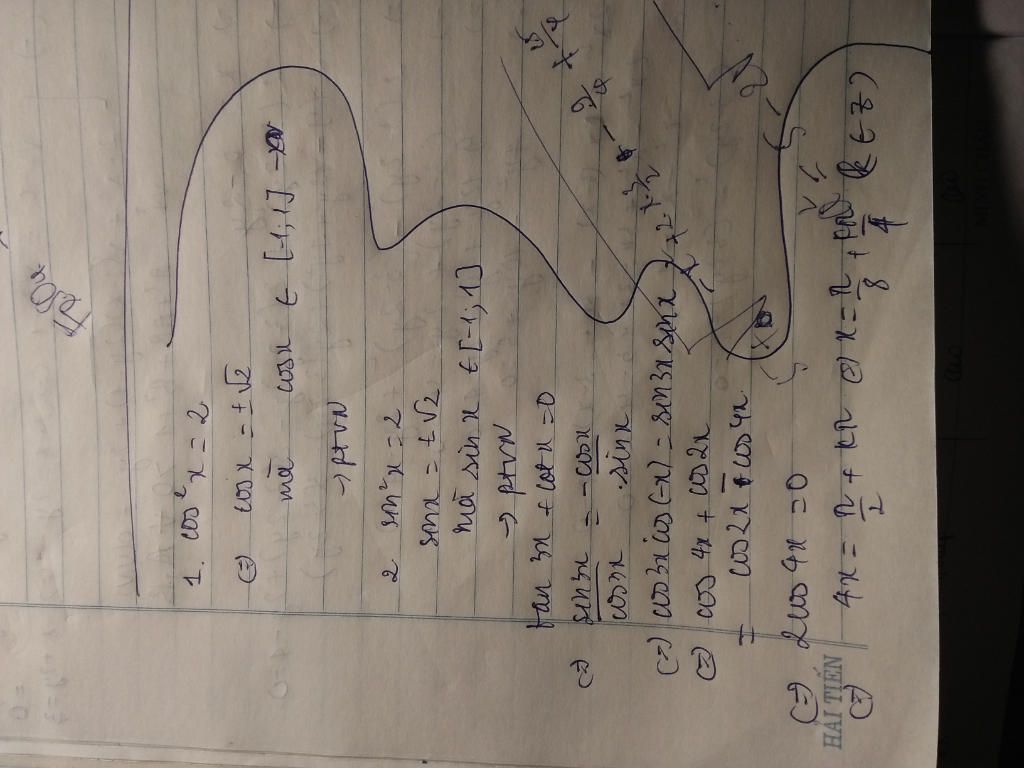 1. cos²x = 2
(=) cosx = ±√2
mà cosx ∈ [-1;1]
→ ptvN
2 sin²x = 2
sinx = ±√2
mà sinx ∈ [-1;1]
→ ptvN
tan 3x + cotx = 0
(=) sin3x / cos3x = -cosx / sinx
(=) cos3xcos(-x) = sin3x sinx
(=) cos 4x + cos2x
= cos2x - cos4x
(=) 2cos4x = 0
HẢI TIẾN
(=) 4x = π/2 + kπ (=) x = π/8 + kπ/4 (k ∈ Z)